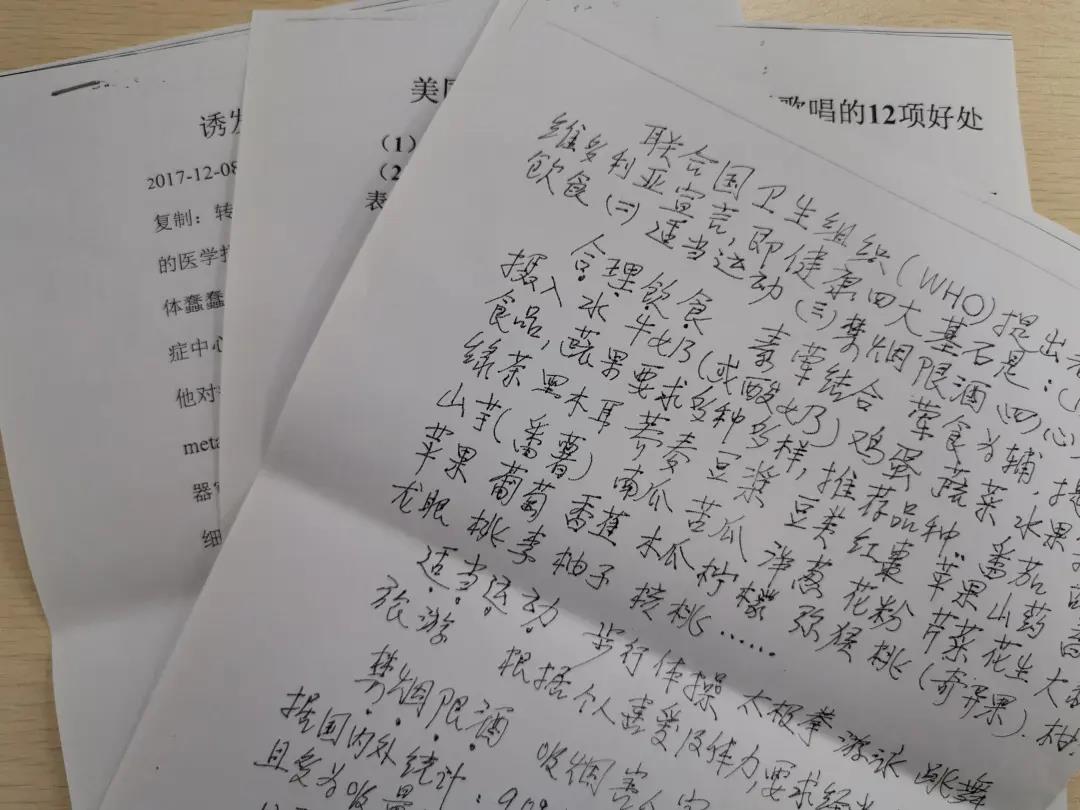 诱发
2017-12-08
复制：转
的医学
体蠢蠢
症中心
他对
meta
器
细
美国
（1）
（2
表
歌唱的12项好处
联合国卫生组织(WHO)提出
维多利亚宣言,即健康四大基石是:(
饮食(二)适当运动(三)禁烟限酒(四)心
合理饮食 素荤结合 荤食为辅,提
摄入水 牛奶(或酸奶)鸡蛋 蔬菜 水果
食品,蔬果要求多种多样,推荐品种:番茄
绿茶 黑木耳 荞麦 豆浆 豆类 红枣 苹果 山药
山芋(番薯) 南瓜 苦瓜 洋葱 花粉 芹菜 花生 大
苹果 葡萄 香蕉 木瓜 柠檬 弥猴桃(奇异果).
龙眼 桃李 柚子 核桃……
适当运动 步行 体操 太极拳 游泳 跳舞
旅游 根据个人喜爱及体力,要求经
禁烟限酒 吸烟害
据国内外统计,90
且多为吸量